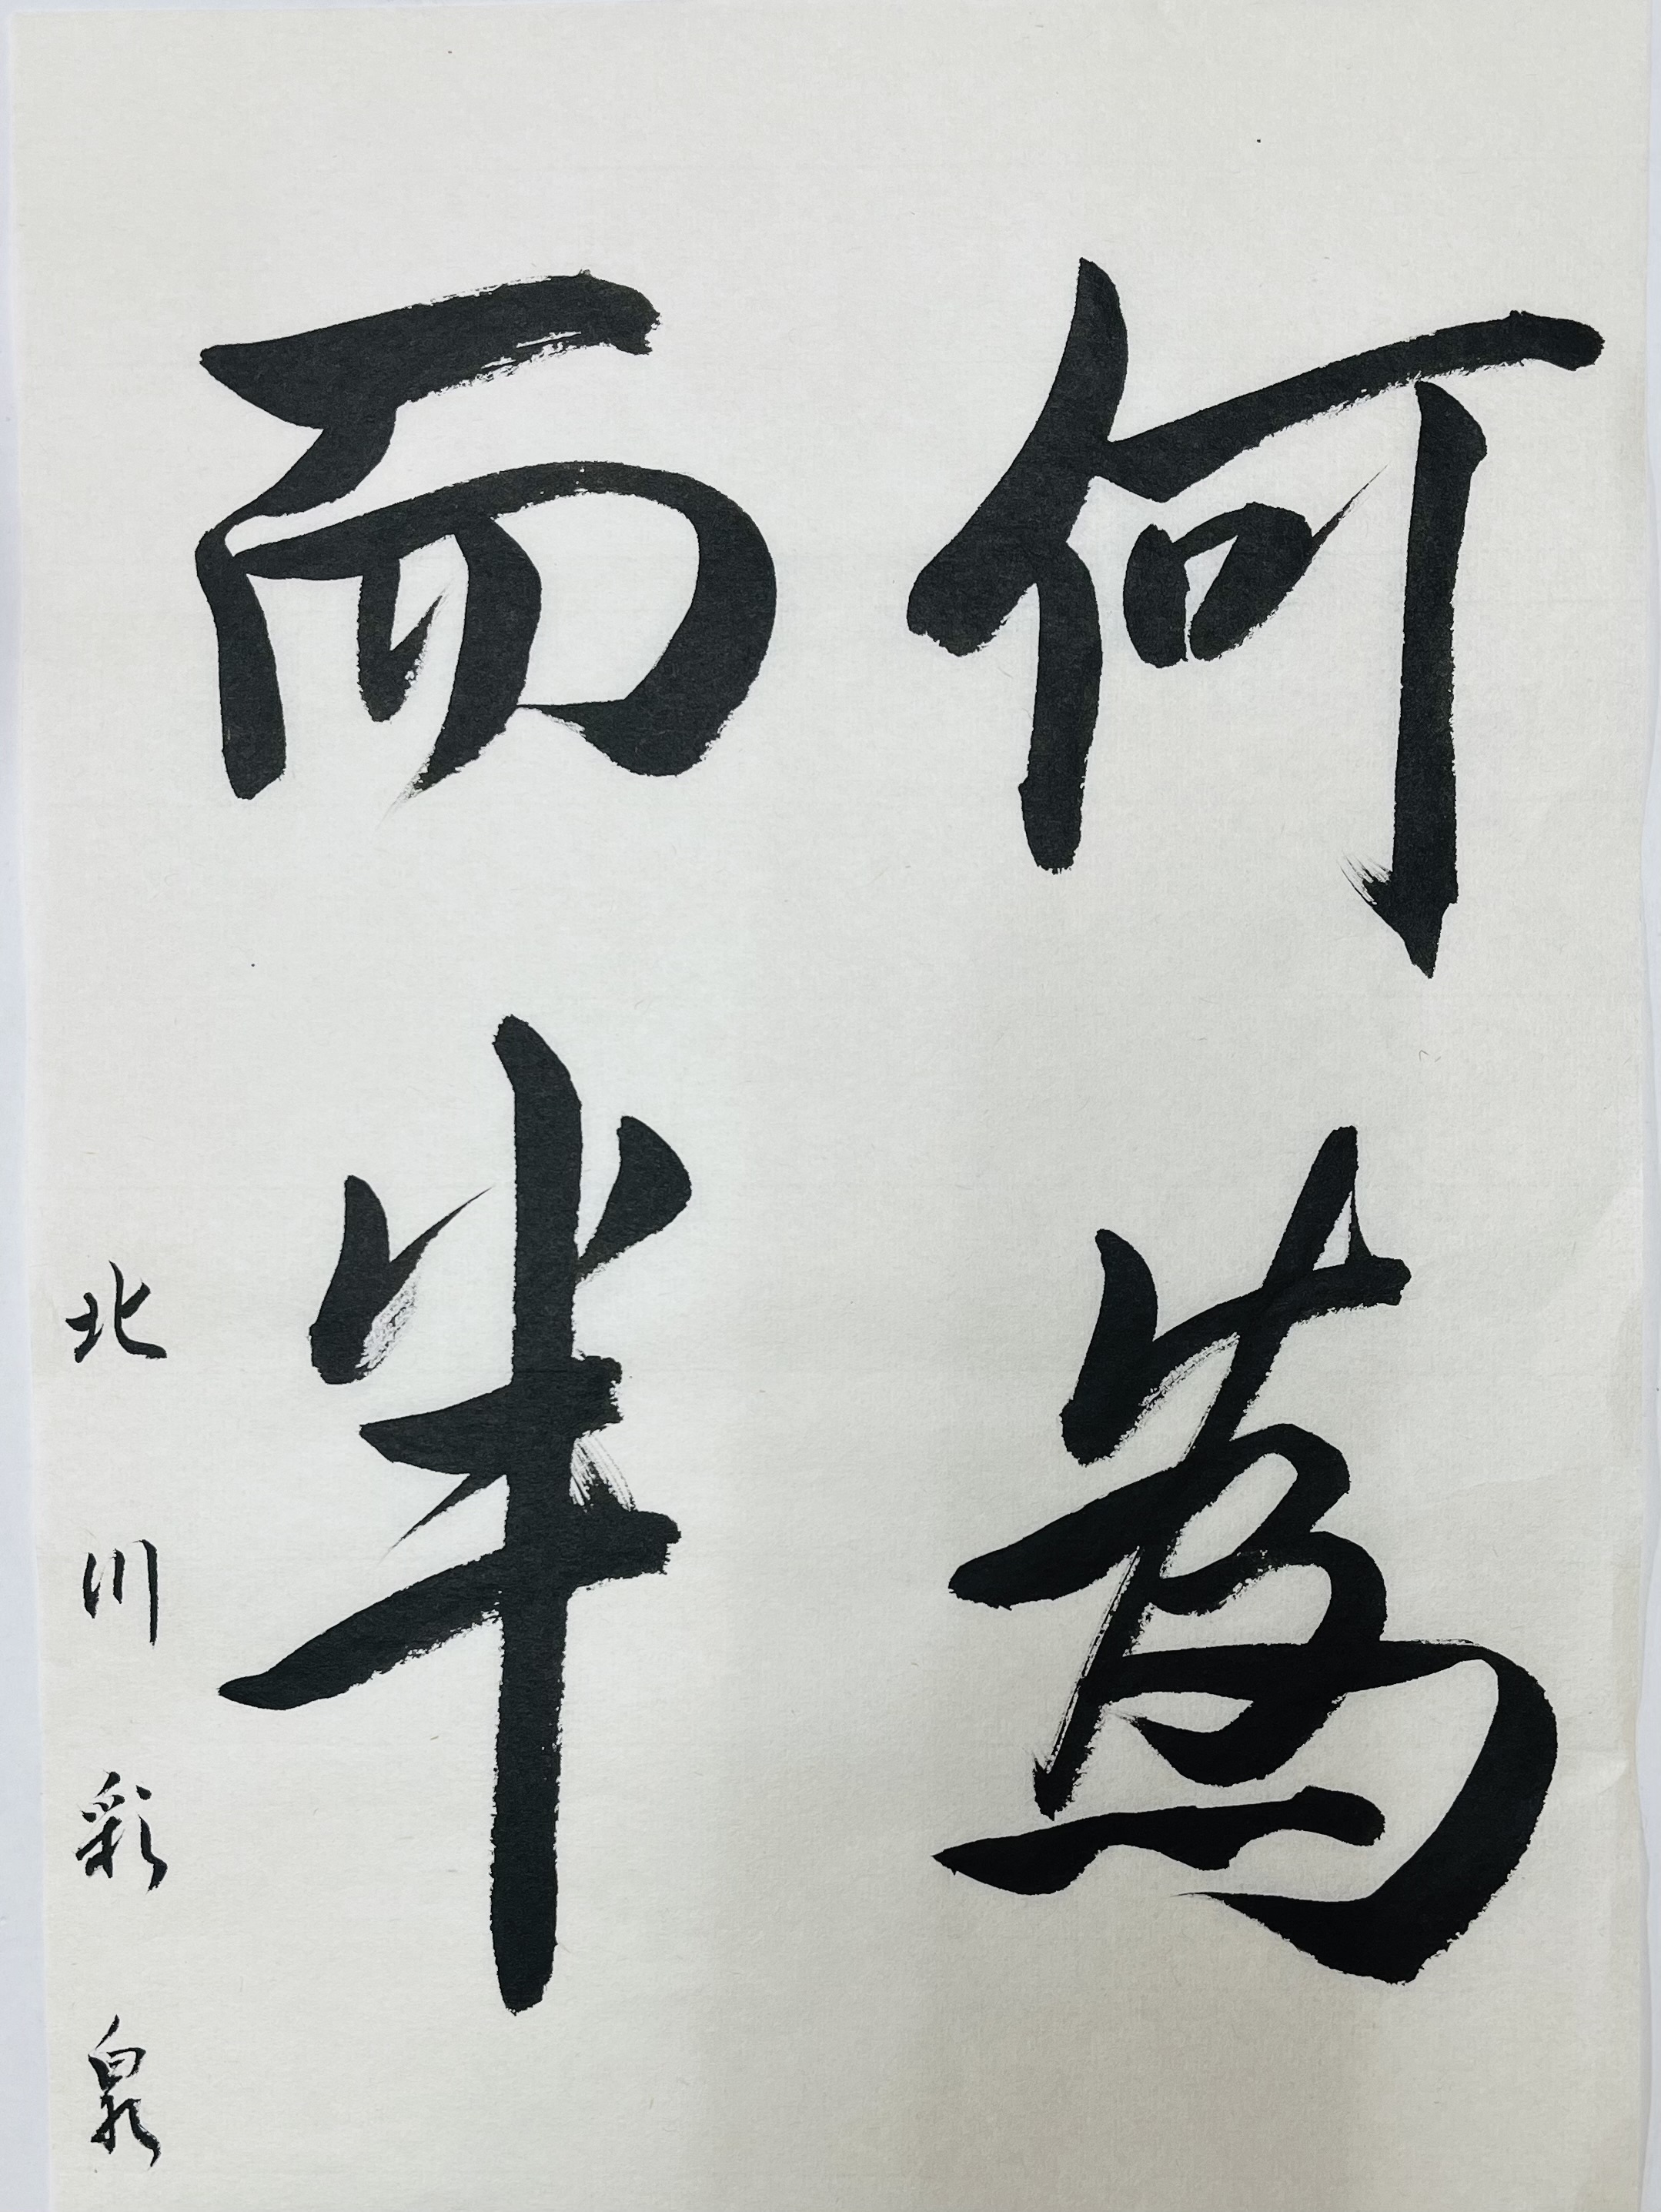 何為
而半
北川彩泉